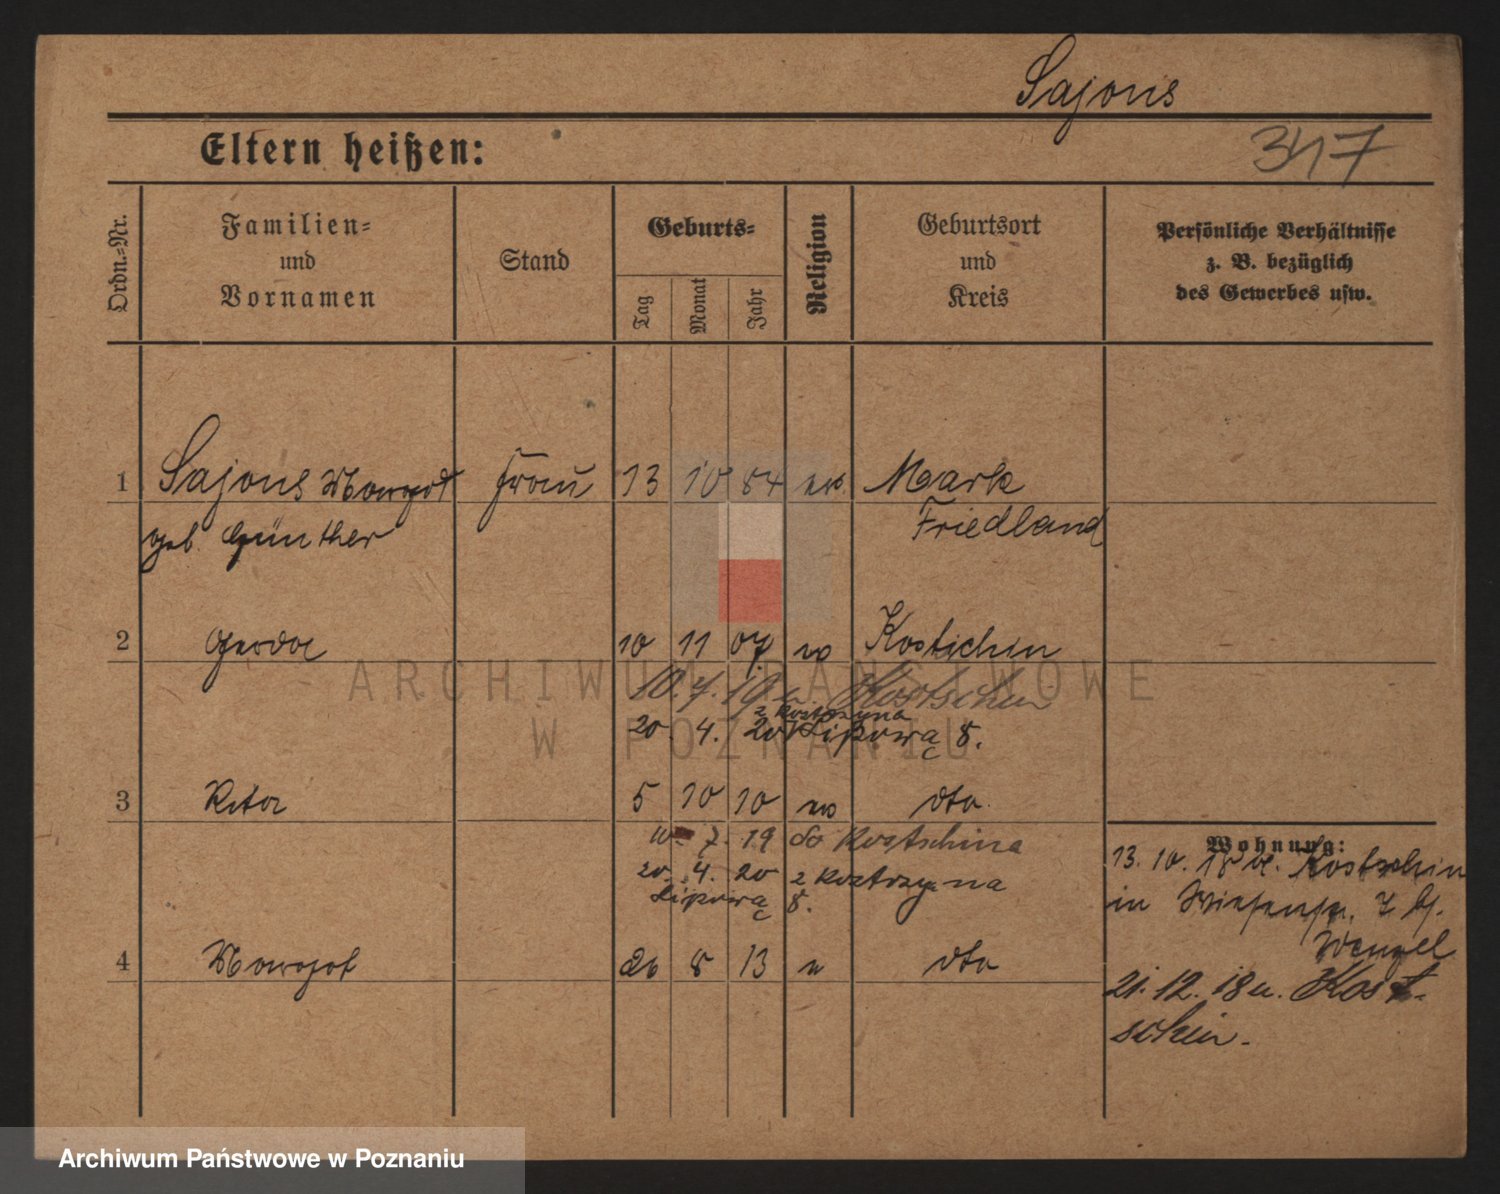 Sajons
347
Eltern heißen:
Ordn.=Nr.
Familien=
und
Vornamen
Stand
Geburts=
Tag
Monat
Jahr
Religion
Geburtsort
und
Kreis
Persönliche Verhältnisse
z. B. bezüglich
des Gewerbes usw.
1 Sajons Margot Frau 13 10 84 Mark
geb. Günther Friedland
2 Gerda 10 11 07 ev Kostschin
10. 7. 19 Kostschin
z Kostrzyna
20. 4. 20 Lipowa 8.
3 Rita 5 10 10 ev dto.
10. 7. 19 Kostschina
20. 4. 20 z Kostrzyna
Lipowa 8.
4 Margot 26 8 13 dto
Wohnung:
13. 10. 18 Kostschin
in 7 b/.
Wenzel
21. 12. 18 n. Kost-
schin.
ARCHIWUM PAŃSTWOWE
W POZNANIU
Archiwum Państwowe w Poznaniu